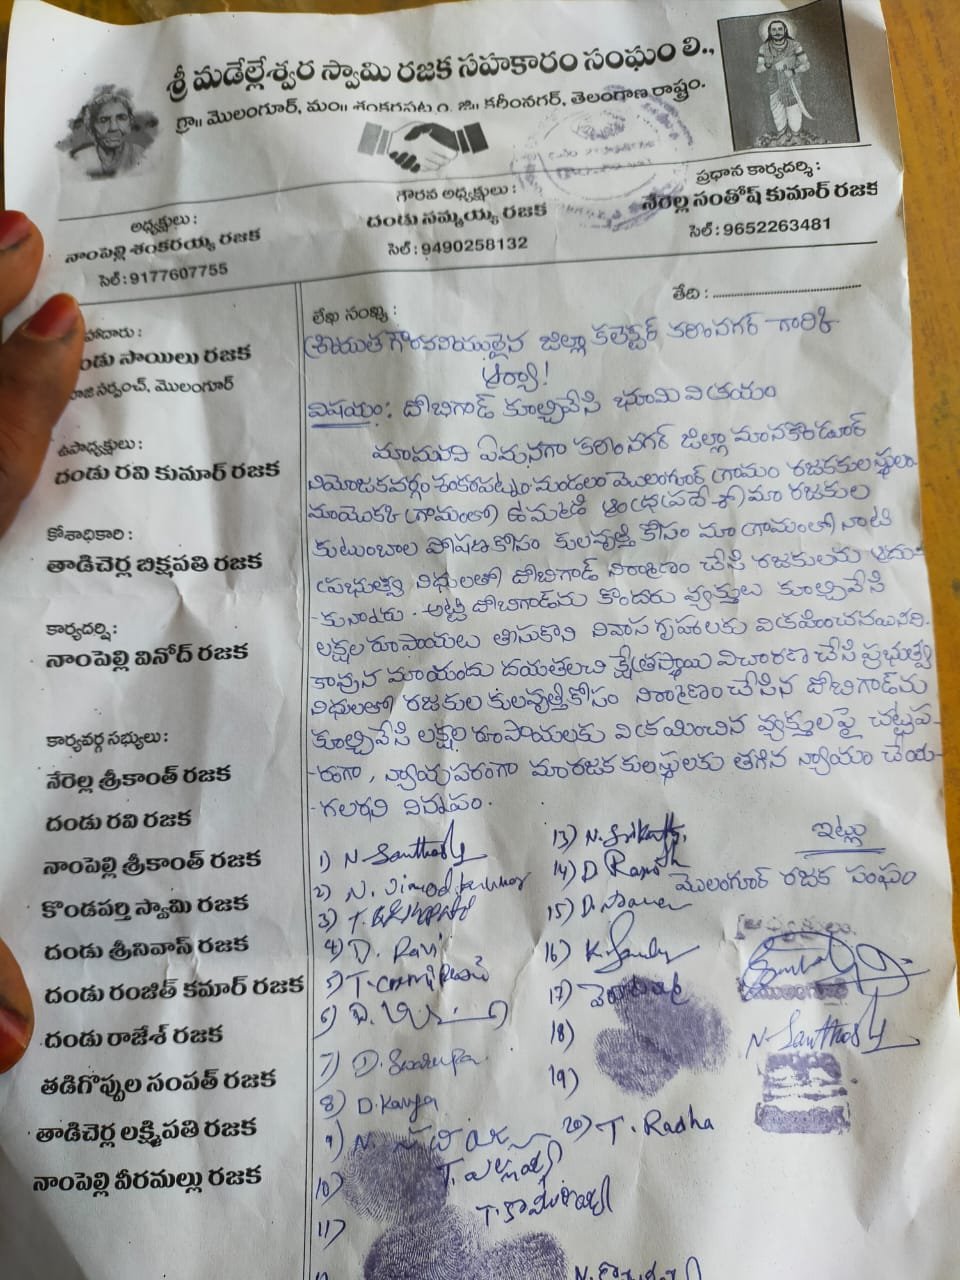 శ్రీ మడేల్లేశ్వర స్వామి రజక సహకారం సంఘం లి.,
గ్రా॥ మొలంగూర్, మం॥ శంకరపట్నం, జి॥ కరీంనగర్, తెలంగాణ రాష్ట్రం.
అధ్యక్షులు :
నాంపెల్లి శంకరయ్య రజక
సెల్ : 9177607755
గౌరవ అధ్యక్షులు :
దండు సమ్మయ్య రజక
సెల్ : 9490258132
ప్రధాన కార్యదర్శి :
నేరెల్ల సంతోష్ కుమార్ రజక
సెల్ : 9652263481
హాదారు :
దండు సాయిలు రజక
మాజీ సర్పంచ్, మొలంగూర్
ఉపాధ్యక్షులు :
దండు రవి కుమార్ రజక
కోశాధికారి :
తాడిచెర్ల బిక్షపతి రజక
కార్యదర్శి :
నాంపెల్లి వినోద్ రజక
కార్యవర్గ సభ్యులు :
నేరెల్ల శ్రీకాంత్ రజక
దండు రవి రజక
నాంపెల్లి శ్రీకాంత్ రజక
కొండపర్తి స్వామి రజక
దండు శ్రీనివాస్ రజక
దండు రంజిత్ కుమార్ రజక
దండు రాజేశ్ రజక
తడిగొప్పుల సంపత్ రజక
తాడిచెర్ల లక్ష్మిపతి రజక
నాంపెల్లి వీరమల్లు రజక
లేఖ సంఖ్య :
తేది : ........................
శ్రీయుత గౌరవనీయులైన జిల్లా కలెక్టర్ కరీంనగర్ గారికి
ఆర్యా!
విషయం : దోబిగాట్ కూల్చివేసి భూమి విక్రయం
మామనవి ఏమనగా కరీంనగర్ జిల్లా మానకొండూర్
నియోజకవర్గం శంకరపట్నం మండలం మొలంగూర్ గ్రామం రజకకులస్థులం
మాయొక్క గ్రామంలో ఉమ్మడి ఆంధ్రప్రదేశ్ లో మా రజకుల
కుటుంబాల పోషణకోసం కులవృత్తి కోసం మా గ్రామంలో నాటి
ప్రభుత్వ నిధులతో దోబిగాట్ నిర్మాణం చేసి రజకులను ఆదు-
-కున్నారు. అట్టి దోబిగాట్‌ను కొందరు వ్యక్తులు కూల్చివేసి
లక్షల రూపాయలు తీసుకొని నివాస గృహాలకు విక్రయించినయినది.
కావున మాయందు దయతలచి క్షేత్రస్థాయి విచారణ చేసి ప్రభుత్వ
నిధులతో రజకుల కులవృత్తికోసం నిర్మాణం చేసిన దోబిగాట్‌ను
కూల్చివేసి లక్షల రూపాయలకు విక్రయించిన వ్యక్తులపై చట్టప-
-రంగా, న్యాయపరంగా మారజక కులస్థులకు తగిన న్యాయం చేయ-
-గలరని వినపం.
ఇట్లు
మొలంగూర్ రజక సంఘం
1) N. Santhosh
2) N. Vinod kumar
3) T.
4) D. Ravi
5) T.
6) D.
7) D. Swarupa
8) D. Kavya
9) N.
10)
T. ఎల్లయ్య
11)
T.
13) N. Srikanth
14) D Ramesh
15) D.
16) K.
17)
18)
19)
20) T. Radha
N. Santhosh